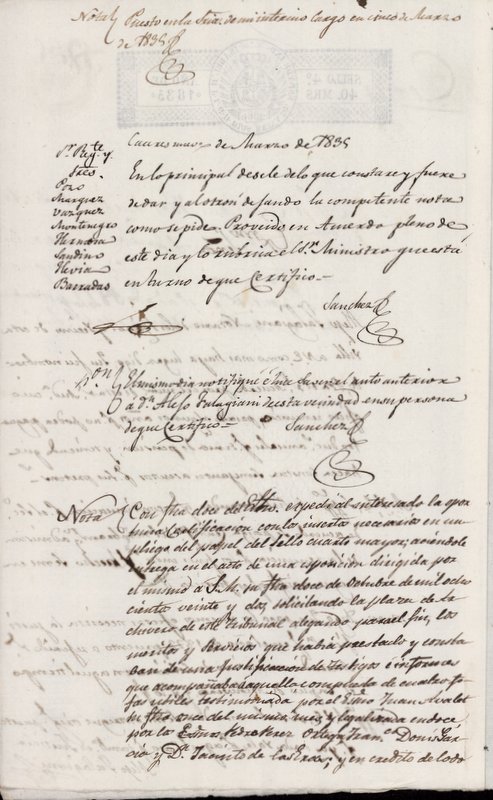 Nota Puesto en la Sria. de mi interino cargo en cinco de Marzo
de 1835
SELLO 4º
40. MRS
1835
Caceres marzo de Marzo de 1835
Sr. Regte. y
Sres.
Pozo
Marquez
Vazquez
Montenegro
Hermosa
Sandino
Hevia
Barradas
En lo principal desele de lo que constare y fuere
de dar y al otrosi dejando la competente nota
como se pide. Proveido en Acuerdo pleno de
este dia y lo rubrica el Sr. Ministro que está
en turno de que Certifico
Sanchez
El mismo dia notifiqué é hice saver el auto anterior
a Dn. Alejo de esta vecindad en su persona
de que Certifico Sanchez
Nota Con fha doce de expedi al interesado la opor
tuna certificacion con la inserta necesaria en un
pliego del papel del sello cuarto mayor; aciendole
entrega en el acto de una esposicion dirigida por
el mismo a S.M. su fha doce de Octubre de mil ocho
ciento veinte y dos, solicitando la plaza de Ar
chivero de este Tribunal alegando para el fin, los
meritos y servicios que habia prestado y consta
ban de una justificacion de testigos é informes
que acompañaba a aquella compuesta de cuatro fo
jas utiles testimoniada por el Esno Juan
su fha once del mismo mes y legalizada en doce
por los Esnos Perez Ortega Franco. Donis Gar
cia y Dn. Jacinto de las Eras; y en credito de todo